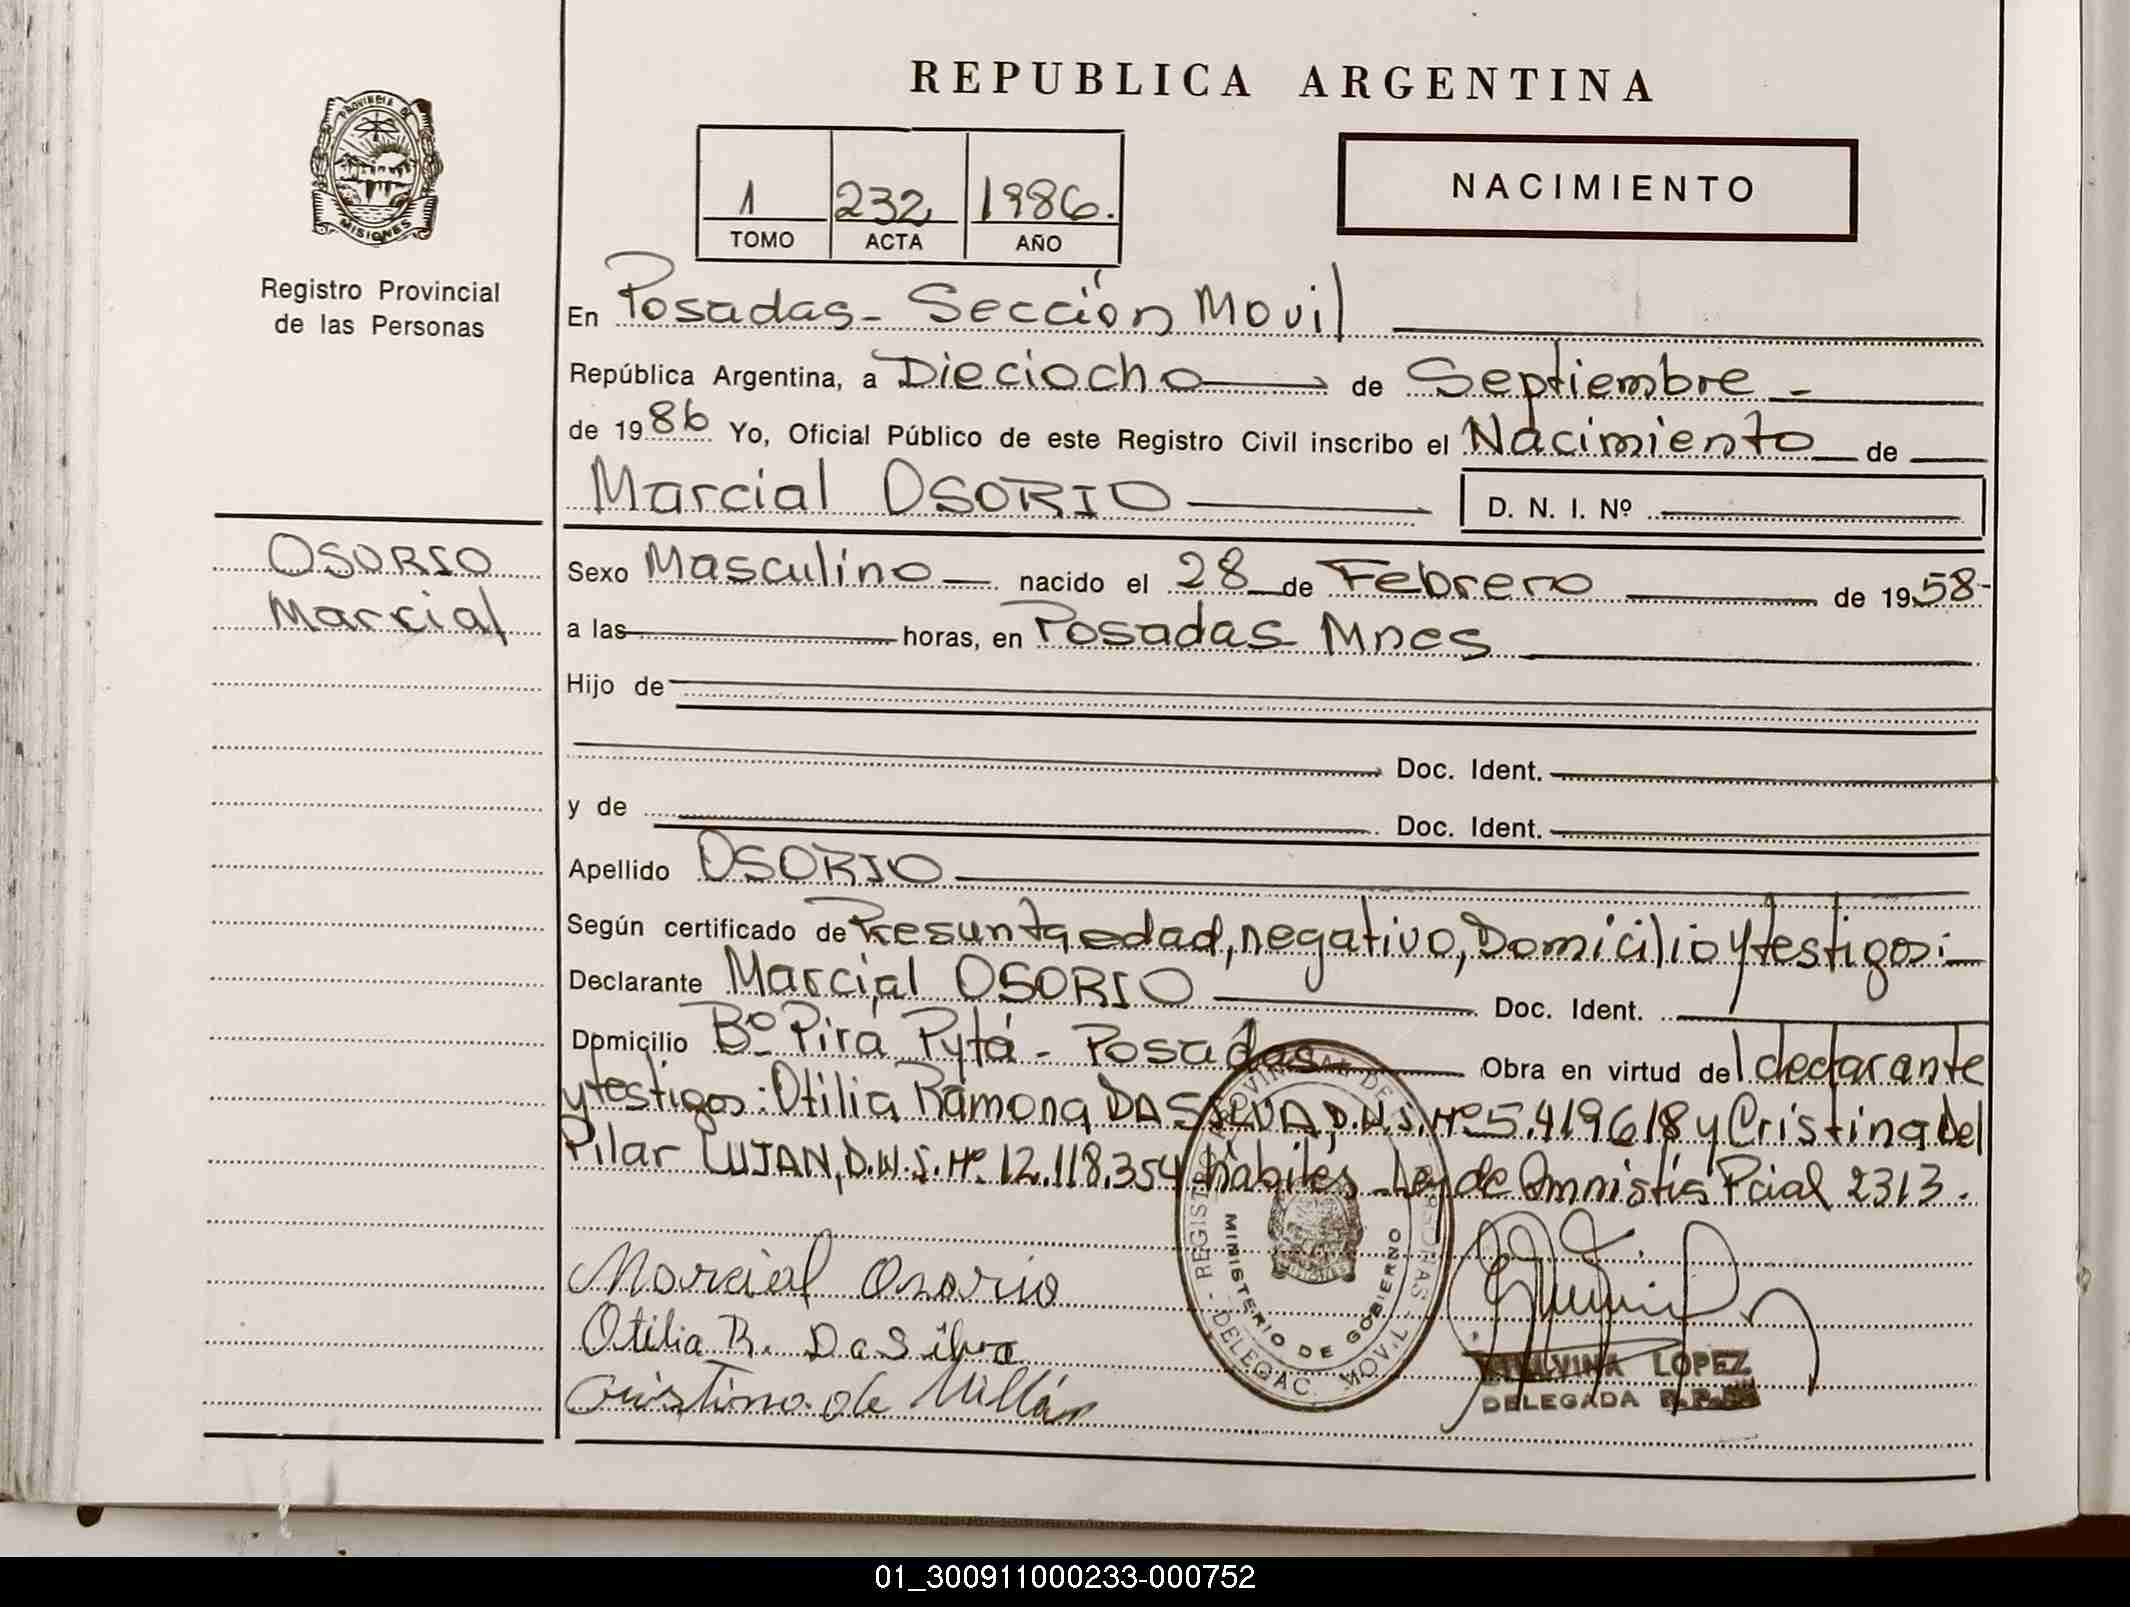 REPUBLICA ARGENTINA
PROVINCIA DE
MISIONES
Registro Provincial
de las Personas
1 232 1986.
TOMO ACTA AÑO
NACIMIENTO
En Posadas - Sección Movil
República Argentina, a Dieciocho de Septiembre -
de 1986 Yo, Oficial Público de este Registro Civil inscribo el Nacimiento de
Marcial OSORIO D. N. I. Nº
OSORIO
Marcial
Sexo Masculino nacido el 28 de Febrero de 1958-
a las horas, en Posadas Mnes
Hijo de
Doc. Ident.
y de Doc. Ident.
Apellido OSORIO
Según certificado de Presunta edad, negativo, Domicilio y testigos:
Declarante Marcial OSORIO Doc. Ident.
Domicilio Bº Pirá Pytá - Posadas Obra en virtud del declarante
y testigos: Otilia Ramona DA SILVA, D.N.I. Nº 5.419618 y Cristina del
Pilar LUJAN, D.N.I. Nº 12.118.354 habiles Ley de Amnistía Pcial 2313.
REGISTRO PROVINCIAL DE PERSONAS - DELEGAC. MOVIL
MINISTERIO DE GOBIERNO
Marcial Osorio
Otilia R. Da Silva
Cristina de Millán
MALVINA LOPEZ
DELEGADA
01_300911000233-000752